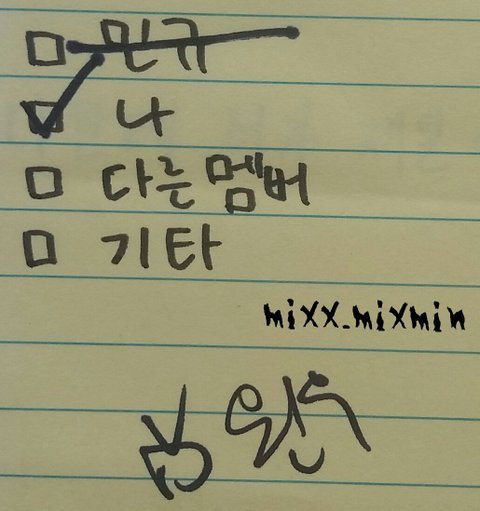 민규
나
다른멤버
기타
mixx_mixmin